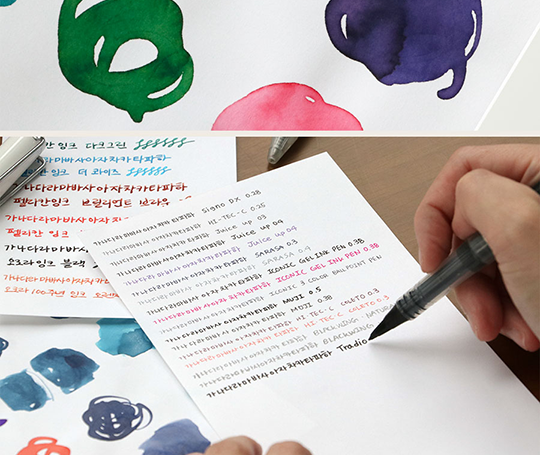 잉크 다크그린
가나다라마바사아자차카타파하
펠리칸잉크
가나다라마바사아자차카타파하
펠리칸잉크 브릴리언트 브라운
가나다라마바사아자
펠리칸 잉크
가나다라마바사아자
잉크 블랙
가나다라마바사아자차카
100주년 잉크
가나다라마바사아자차카타파하 Signo DX 0.38
가나다라마바사아자차카타파하 HI-TEC-C 0.25
가나다라마바사아자차카타파하 Juice up 03
가나다라마바사아자차카타파하 Juice up 04
가나다라마바사아자차카타파하 SARASA 0.3
가나다라마바사아자차카타파하 SARASA 0.4
가나다라마바사아자차카타파하 ICONIC GEL INK PEN 0.38
가나다라마바사아자차카타파하 ICONIC GEL INK PEN 0.38
가나다라마바사아자차카타파하 ICONIC 3 COLOR BALLPOINT PEN
가나다라마바사아자차카타파하 MUJI 0.5
가나다라마바사아자차카타파하 MUJI 0.38
가나다라마바사아자차카타파하 HI-TEC-C COLETO 0.3
가나다라마바사아자차카타파하 HI-TEC-C COLETO 0.3
가나다라마바사아자차카타파하 BLACKWING
가나다라마바사아자차카타파하 BLACKWING
가나다라마바사아자차카타파하 Tradio